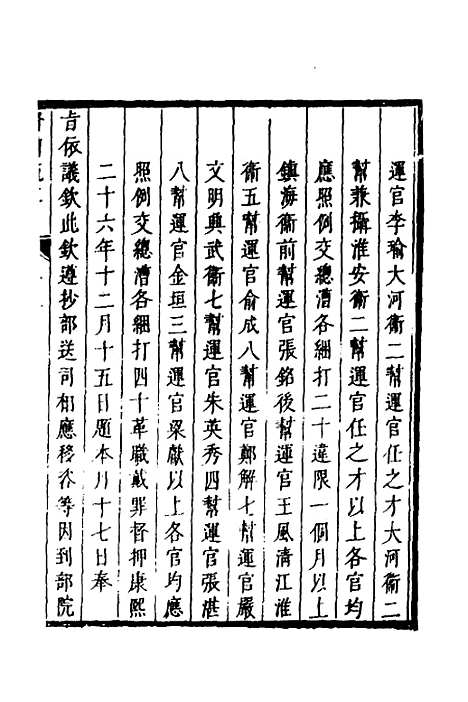 運官李瑜大河衛二幫運官任之才大河衛二
幫兼攝淮安衛二幫運官任之才以上各官均
應照例交總漕各綑打二十違限一個月以上
鎮海衛前幫運官張銘後幫運官王風清江淮
衛五幫運官俞成八幫運官鄭解七幫運官嚴
文明興武衛七幫運官朱英秀四幫運官張湛
八幫運官金垣三幫運官梁獻以上各官均應
照例交總漕各綑打四十革職戴罪督押康熙
二十六年十二月十五日題本月十七日奉
旨依議欽此欽遵抄部送司相應移咨等因到部院